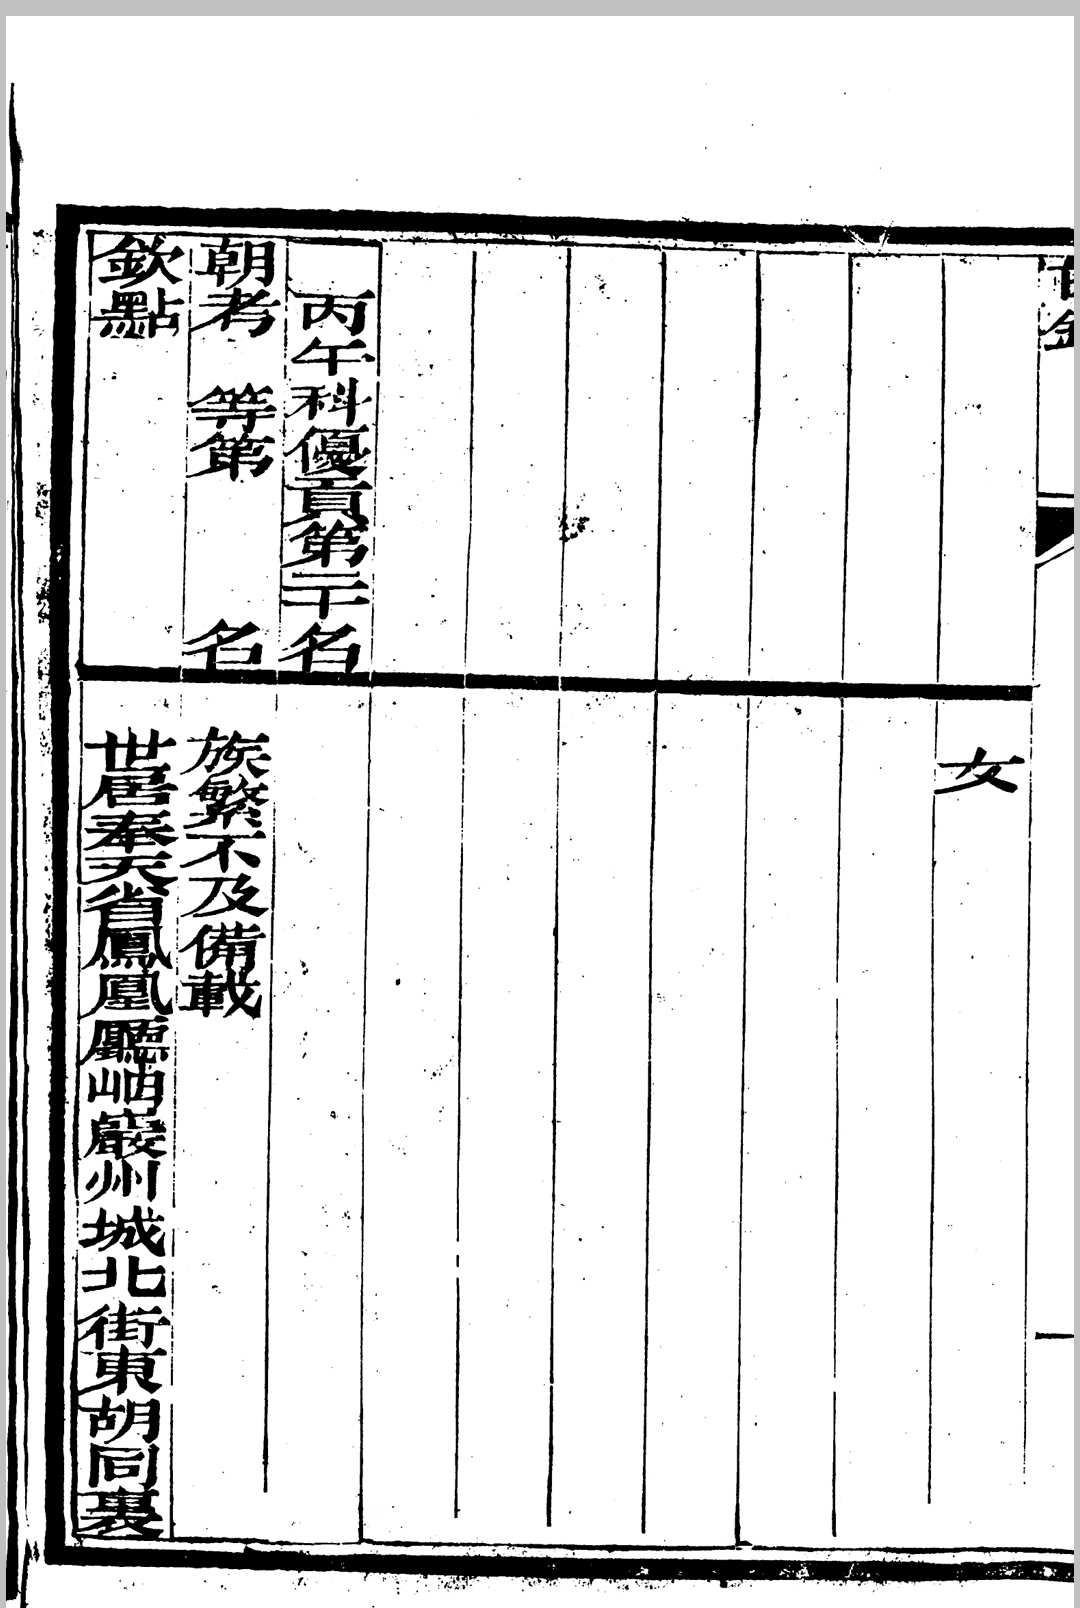 女
丙午科優貢第二十名
朝考　等第　　　名
欽點
族繁不及備載
世居奉天省鳳凰廳岫巖州城北街東胡同裏